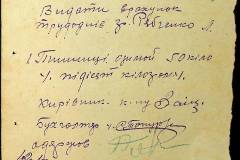 Видати врахунок
трудоднів
1 Пшениці озимой 50 кіло
/ підісят кілограм/
Кирівник к-пу
Бухгалтер
одержав